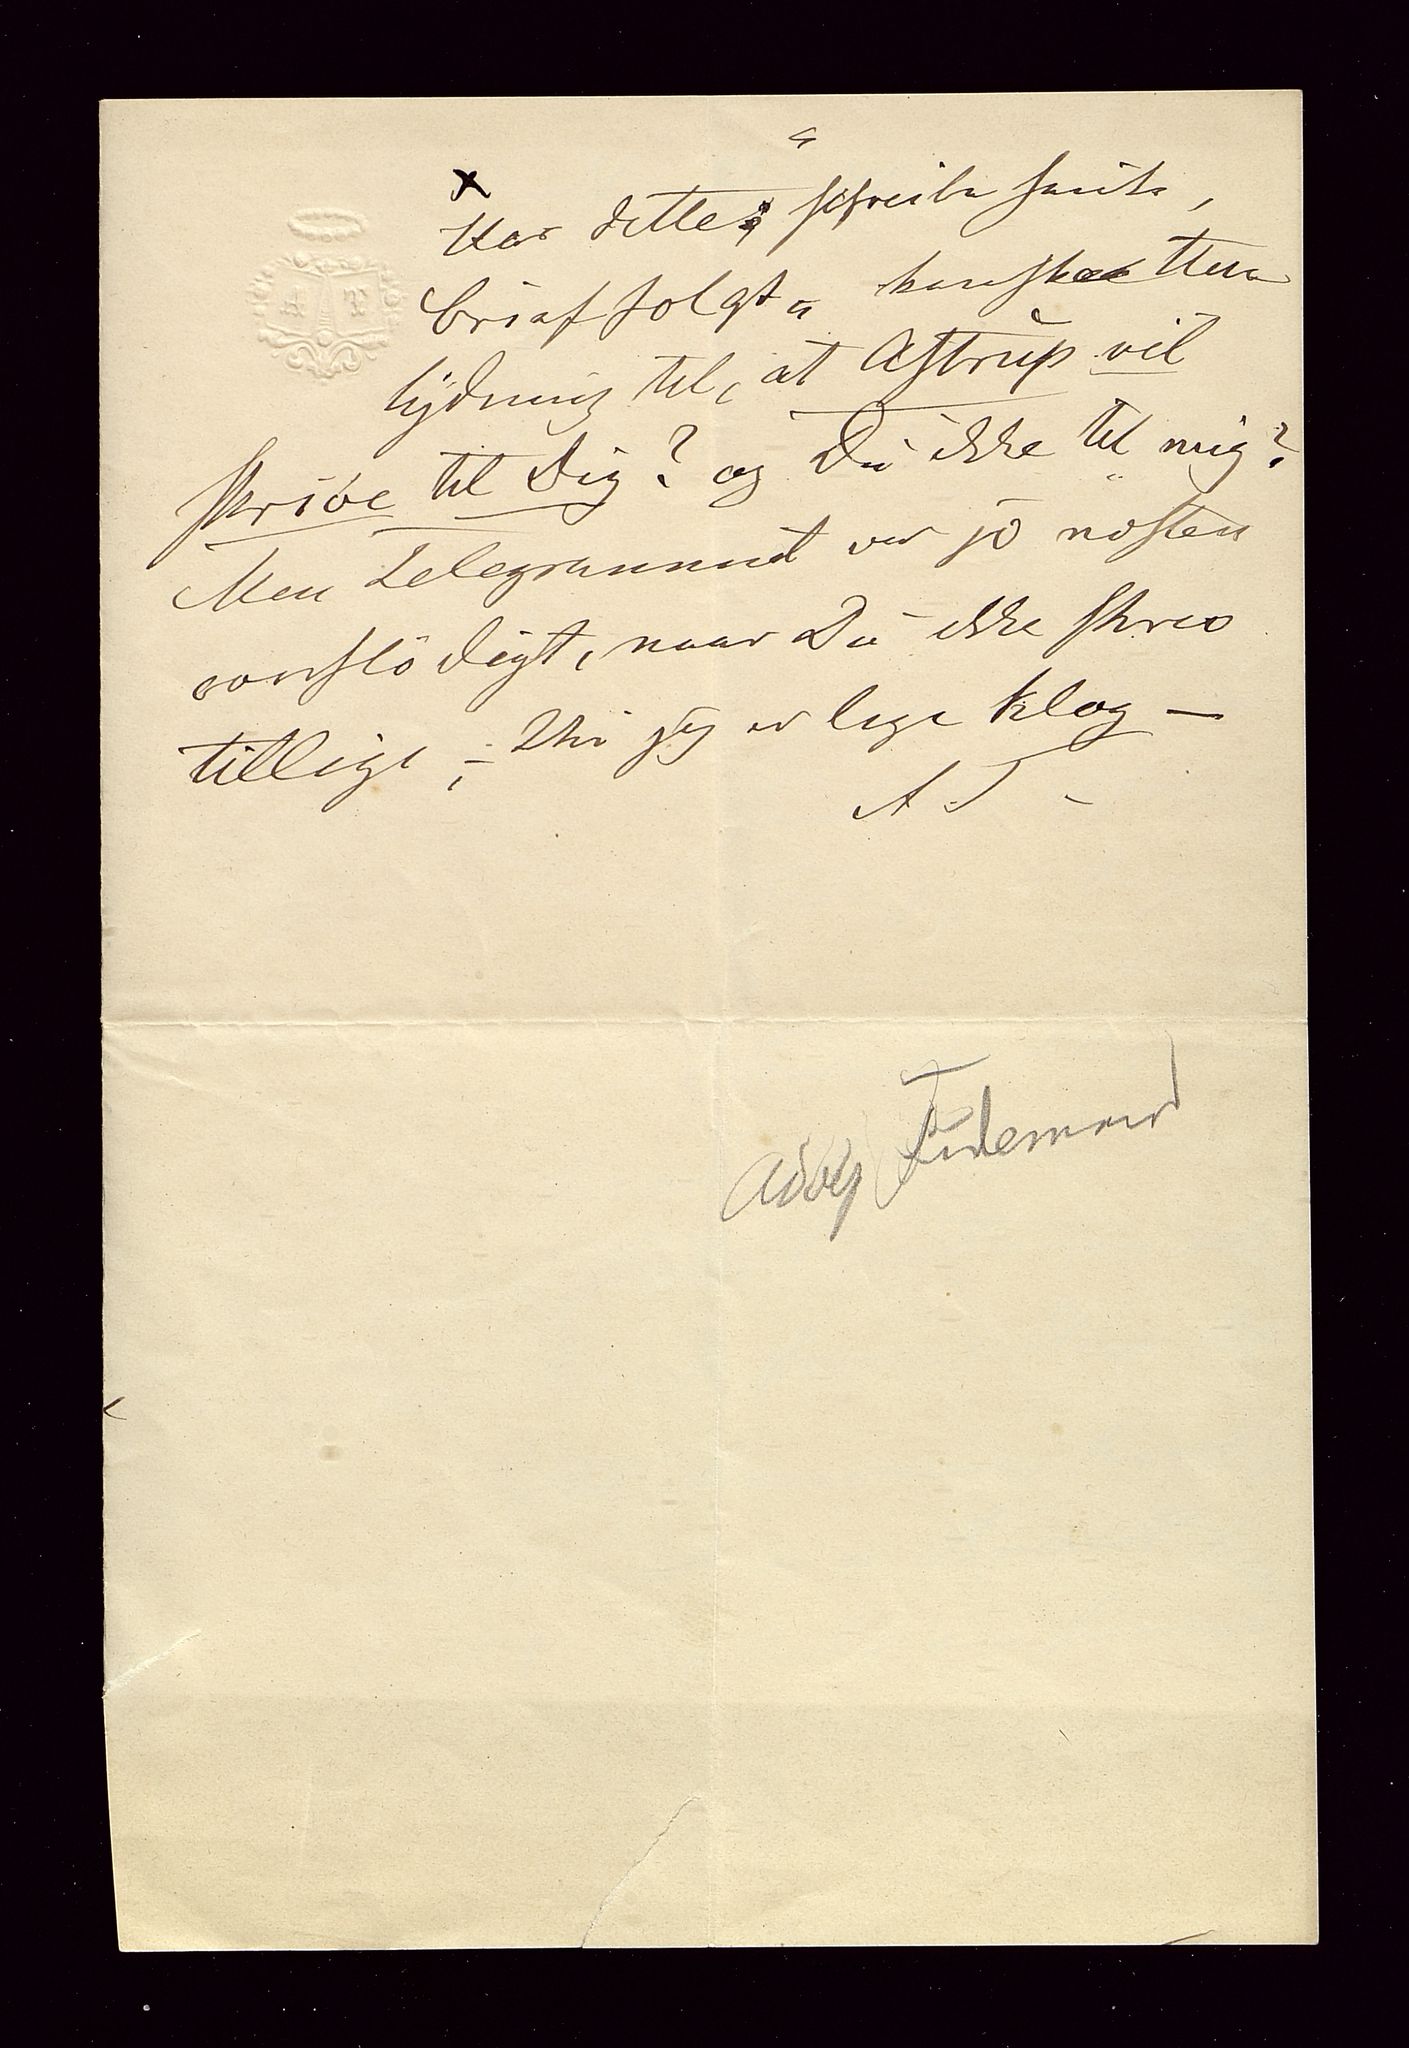 x
Har dette „schreibe heute,
brief folgt“ kanskee Hen
tydning til, at Astrup vil
skrive til Dig? og Du ikke til mig?
Men Telegrammet var jo næsten
overflödigt, naar Du ikke skrev
tillige; – Thi jeg er lige klog –
A T –
Adolf Tidemand